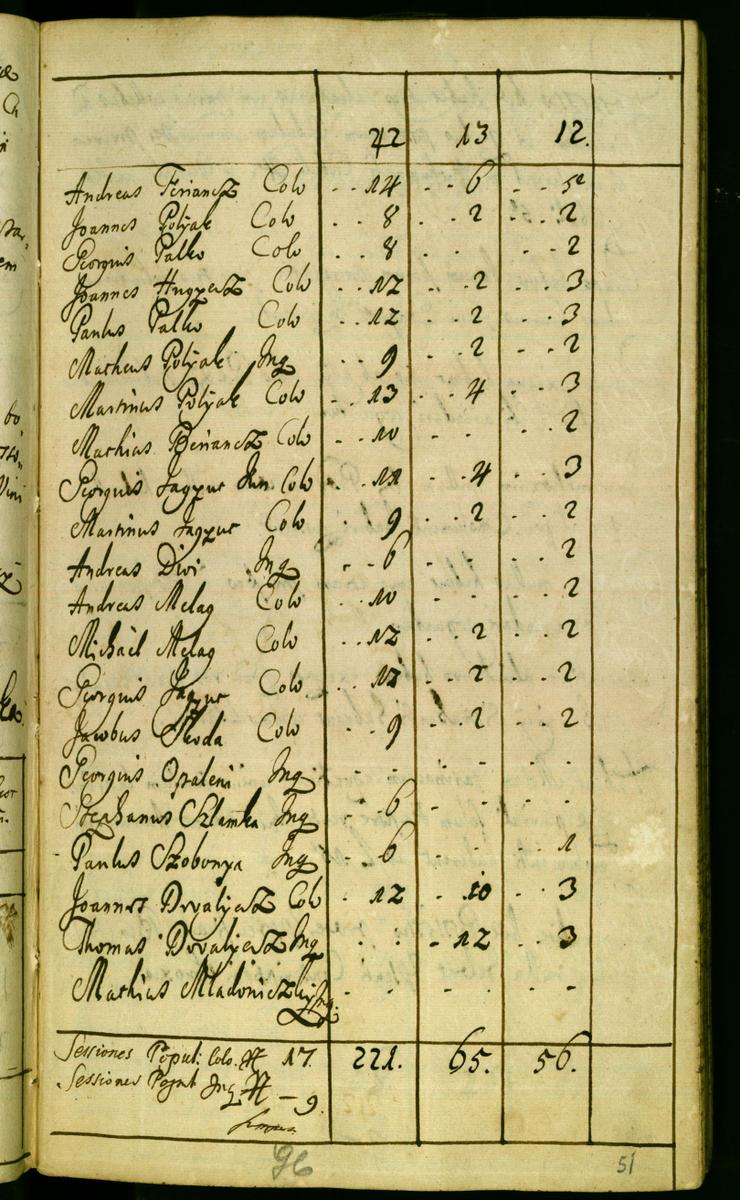 42 13 12.
Andreas Feriancz Colo - - 14 - - 6 - - 5
Joannes Polyak Colo - - 8 - - 2 - - 2
Georgius Palko Colo - - 8 - - - - 2
Joannes Colo - - 12 - - 2 - - 3
Paulus Palko Colo - - 12 - - 2 - - 3
Matheus Polyak Inq - - 9 - - 2 - - 2
Martinus Polyak Colo - - 13 - - 4 - - 3
Mathias Colo - - 10 - - - - 2
Georgius Jun. Colo - - - - 4 - - 3
Martinus Colo - - 9 - - 2 - - 2
Andreas Divi Inq - - 6 - - - - 2
Andreas Melag Colo - - 10 - - - - 2
Michael Melag Colo - - 12 - - 2 - - 2
Georgius Colo - - 12 - - 2 - - 2
Jacobus Skoda Colo - - 9 - - 2 - - 2
Georgius Opaleni Inq - - - - - -
Stephanus Szlamka Inq - - 6 - - - -
Paulus Szobonya Inq - - 6 - - - - 1
Joannes Drvalyecz Colo - - 12 - - 10 - - 3
Thomas Drvalyecz Inq - - - - 12 - - 3
Mathias Mladoniczky Inq - - - - - -
Sessiones Popul: Colo. 17. 221. 65. 56.
Sessiones Popul Inq — 9.
96
51